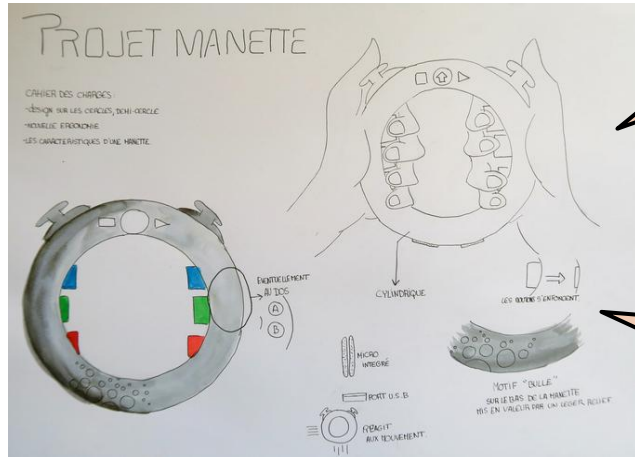 PROJET MANETTE
CAHIER DES CHARGES:
-design SUR LES CERCLES, DEMI-CERCLE
-NOUVELLE ERGONOMIE
-LES CARACTÉRISTIQUES D'UNE MANETTE.
EVENTUELLEMENT
AU DOS
A
B
CYLINDRIQUE
LES BOUTONS S'ENFONCENT
MICRO
INTEGRÉ
PORT U.S.B
RÉAGIT
AUX MOUVEMENT.
MOTIF "BULLE"
SUR LE BAS DE LA MANETTE
MIS EN VALEUR PAR UN LEGER RELIEF